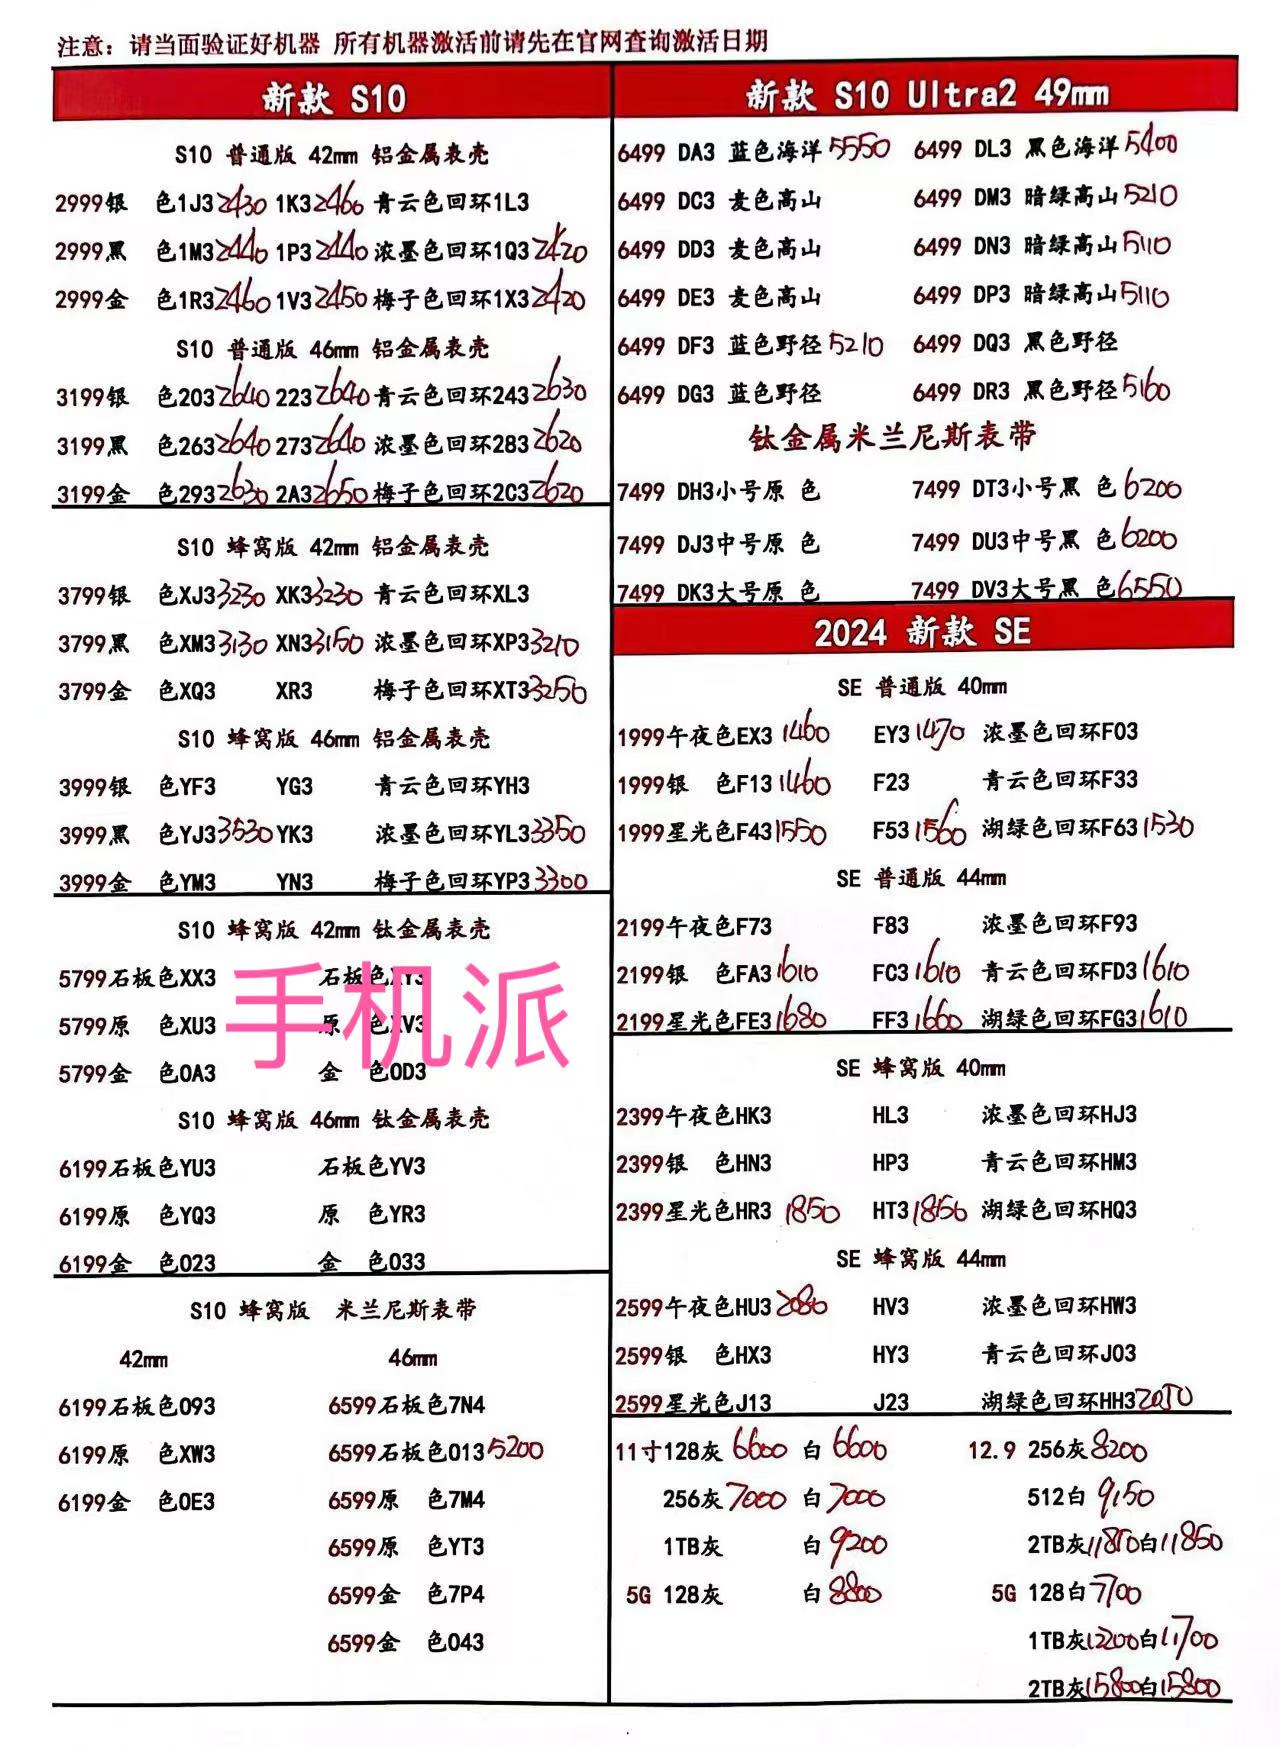 注意：请当面验证好机器 所有机器激活前请先在官网查询激活日期
新款 S10
S10 普通版 42mm 铝金属表壳
2999银 色1J3 2430 1K3 2460 青云色回环1L3
2999黑 色1M3 2440 1P3 2440 浓墨色回环1Q3 2420
2999金 色1R3 2460 1V3 2450 梅子色回环1X3 2420
S10 普通版 46mm 铝金属表壳
3199银 色203 2640 223 2640 青云色回环243 2630
3199黑 色263 2640 273 2640 浓墨色回环283 2620
3199金 色293 2630 2A3 2650 梅子色回环2C3 2620
S10 蜂窝版 42mm 铝金属表壳
3799银 色XJ3 3230 XK3 3230 青云色回环XL3
3799黑 色XM3 3130 XN3 3150 浓墨色回环XP3 3210
3799金 色XQ3 XR3 梅子色回环XT3 3250
S10 蜂窝版 46mm 铝金属表壳
3999银 色YF3 YG3 青云色回环YH3
3999黑 色YJ3 3530 YK3 浓墨色回环YL3 3350
3999金 色YM3 YN3 梅子色回环YP3 3300
S10 蜂窝版 42mm 钛金属表壳
5799石板色XX3 石板色XY3
5799原 色XU3 原 色XV3
5799金 色0A3 金 色0D3
手机派
S10 蜂窝版 46mm 钛金属表壳
6199石板色YU3 石板色YV3
6199原 色YQ3 原 色YR3
6199金 色023 金 色033
S10 蜂窝版 米兰尼斯表带
42mm 46mm
6199石板色093 6599石板色7N4
6199原 色XW3 6599石板色013 5200
6199金 色0E3 6599原 色7M4
6599原 色YT3
6599金 色7P4
6599金 色043
新款 S10 Ultra2 49mm
6499 DA3 蓝色海洋 5550 6499 DL3 黑色海洋 5400
6499 DC3 麦色高山 6499 DM3 暗绿高山 5210
6499 DD3 麦色高山 6499 DN3 暗绿高山 5110
6499 DE3 麦色高山 6499 DP3 暗绿高山 5110
6499 DF3 蓝色野径 5210 6499 DQ3 黑色野径
6499 DG3 蓝色野径 6499 DR3 黑色野径 5160
钛金属米兰尼斯表带
7499 DH3小号原 色 7499 DT3小号黑 色 6200
7499 DJ3中号原 色 7499 DU3中号黑 色 6200
7499 DK3大号原 色 7499 DV3大号黑 色 6550
2024 新款 SE
SE 普通版 40mm
1999午夜色EX3 1460 EY3 1470 浓墨色回环F03
1999银 色F13 1460 F23 青云色回环F33
1999星光色F43 1550 F53 1560 湖绿色回环F63 1530
SE 普通版 44mm
2199午夜色F73 F83 浓墨色回环F93
2199银 色FA3 1610 FC3 1610 青云色回环FD3 1610
2199星光色FE3 1680 FF3 1660 湖绿色回环FG3 1610
SE 蜂窝版 40mm
2399午夜色HK3 HL3 浓墨色回环HJ3
2399银 色HN3 HP3 青云色回环HM3
2399星光色HR3 1850 HT3 1850 湖绿色回环HQ3
SE 蜂窝版 44mm
2599午夜色HU3 2080 HV3 浓墨色回环HW3
2599银 色HX3 HY3 青云色回环J03
2599星光色J13 J23 湖绿色回环HH3 2050
11寸128灰 6600 白 6600 12.9 256灰 8200
256灰 7000 白 7000 512白 9150
1TB灰 白 9200 2TB灰 11850 白 11850
5G 128灰 白 8800 5G 128白 7700
1TB灰 12200 白 11700
2TB灰 15800 白 15800